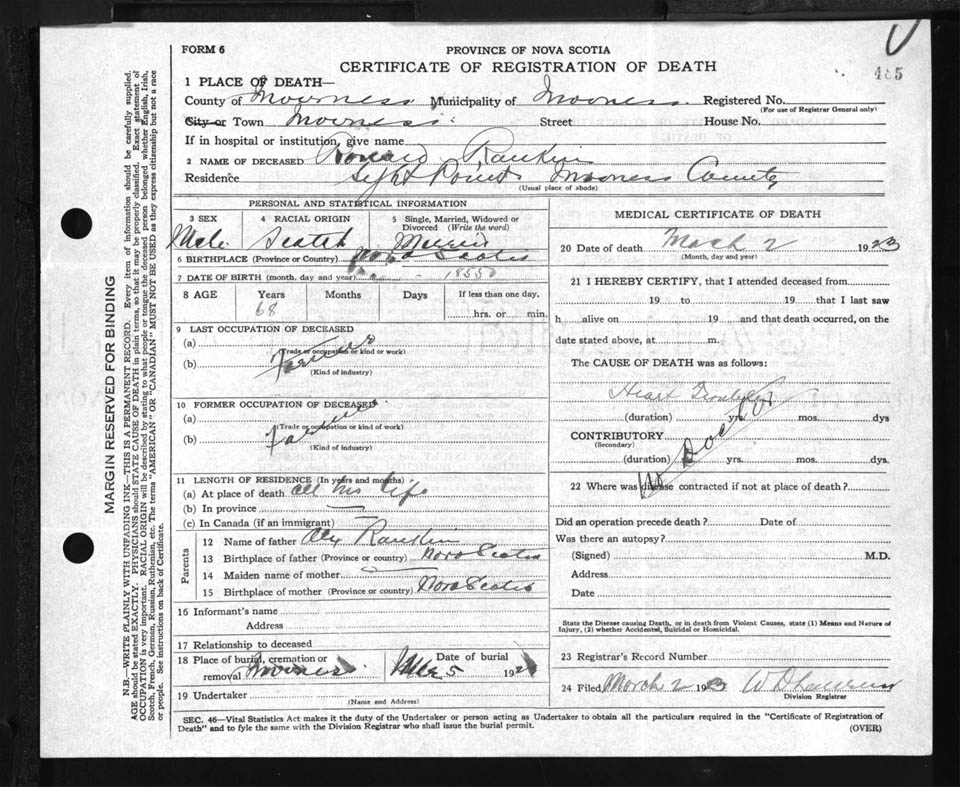 FORM 6
PROVINCE OF NOVA SCOTIA
CERTIFICATE OF REGISTRATION OF DEATH
485
1 PLACE OF DEATH—
County of Inverness Municipality of Inverness Registered No.
(For use of Registrar General only)
City or Town Inverness Street House No.
If in hospital or institution, give name
2 NAME OF DECEASED Ronald Rankin
Residence Sight Point Inverness County
(Usual place of abode)
PERSONAL AND STATISTICAL INFORMATION
3 SEX 4 RACIAL ORIGIN 5 Single, Married, Widowed or Divorced (Write the word)
Male Scotch Married
6 BIRTHPLACE (Province or Country) Nova Scotia
7 DATE OF BIRTH (month, day and year)
8 AGE Years Months Days If less than one day,
68 hrs. or min.
9 LAST OCCUPATION OF DECEASED
(a)
(Trade or occupation or kind or work)
(b) Farmer
(Kind of industry)
10 FORMER OCCUPATION OF DECEASED
(a)
(Trade or occupation or kind of work)
(b) Farmer
(Kind of industry)
11 LENGTH OF RESIDENCE (In years and months)
(a) At place of death all his life
(b) In province
(c) In Canada (if an immigrant)
Parents
12 Name of father Alex Rankin
13 Birthplace of father (Province or country) Nova Scotia
14 Maiden name of mother
15 Birthplace of mother (Province or country) Nova Scotia
16 Informant's name
Address
17 Relationship to deceased
18 Place of burial, cremation or removal Inverness Date of burial 5 192
19 Undertaker
(Name and Address)
MEDICAL CERTIFICATE OF DEATH
20 Date of death March 2 1923
(Month, day and year)
21 I HEREBY CERTIFY, that I attended deceased from
19 to 19 that I last saw
h alive on 19 and that death occurred, on the
date stated above, at m.
The CAUSE OF DEATH was as follows:
Heart Trouble
(duration) yrs. mos. dys
CONTRIBUTORY
(Secondary)
(duration) yrs. mos. dys.
No Doctor
22 Where was disease contracted if not at place of death?
Did an operation precede death? Date of
Was there an autopsy?
(Signed) M.D.
Address
Date
State the Disease causing Death, or in death from Violent Causes, state (1) Means and Nature of
Injury, (2) whether Accidental, Suicidal or Homicidal.
23 Registrar's Record Number
24 Filed March 2 1923
Division Registrar
SEC. 46—Vital Statistics Act makes it the duty of the Undertaker or person acting as Undertaker to obtain all the particulars required in the "Certificate of Registration of
Death" and to fyle the same with the Division Registrar who shall issue the burial permit.
(OVER)
MARGIN RESERVED FOR BINDING
N.B.—WRITE PLAINLY WITH UNFADING INK—THIS IS A PERMANENT RECORD. Every item of information should be carefully supplied.
AGE should be stated EXACTLY. PHYSICIANS should STATE CAUSE OF DEATH in plain terms, so that it may be properly classified. Exact statement of
OCCUPATION is very important. RACIAL ORIGIN will be described by stating to what people or tongue the deceased person belonged whether English, Irish,
Scotch, French, German, Russian, Ruthenian, etc. The terms "AMERICAN" OR "CANADIAN" MUST NOT BE USED as they express citizenship but not a race
or people. See instructions on back of Certificate.